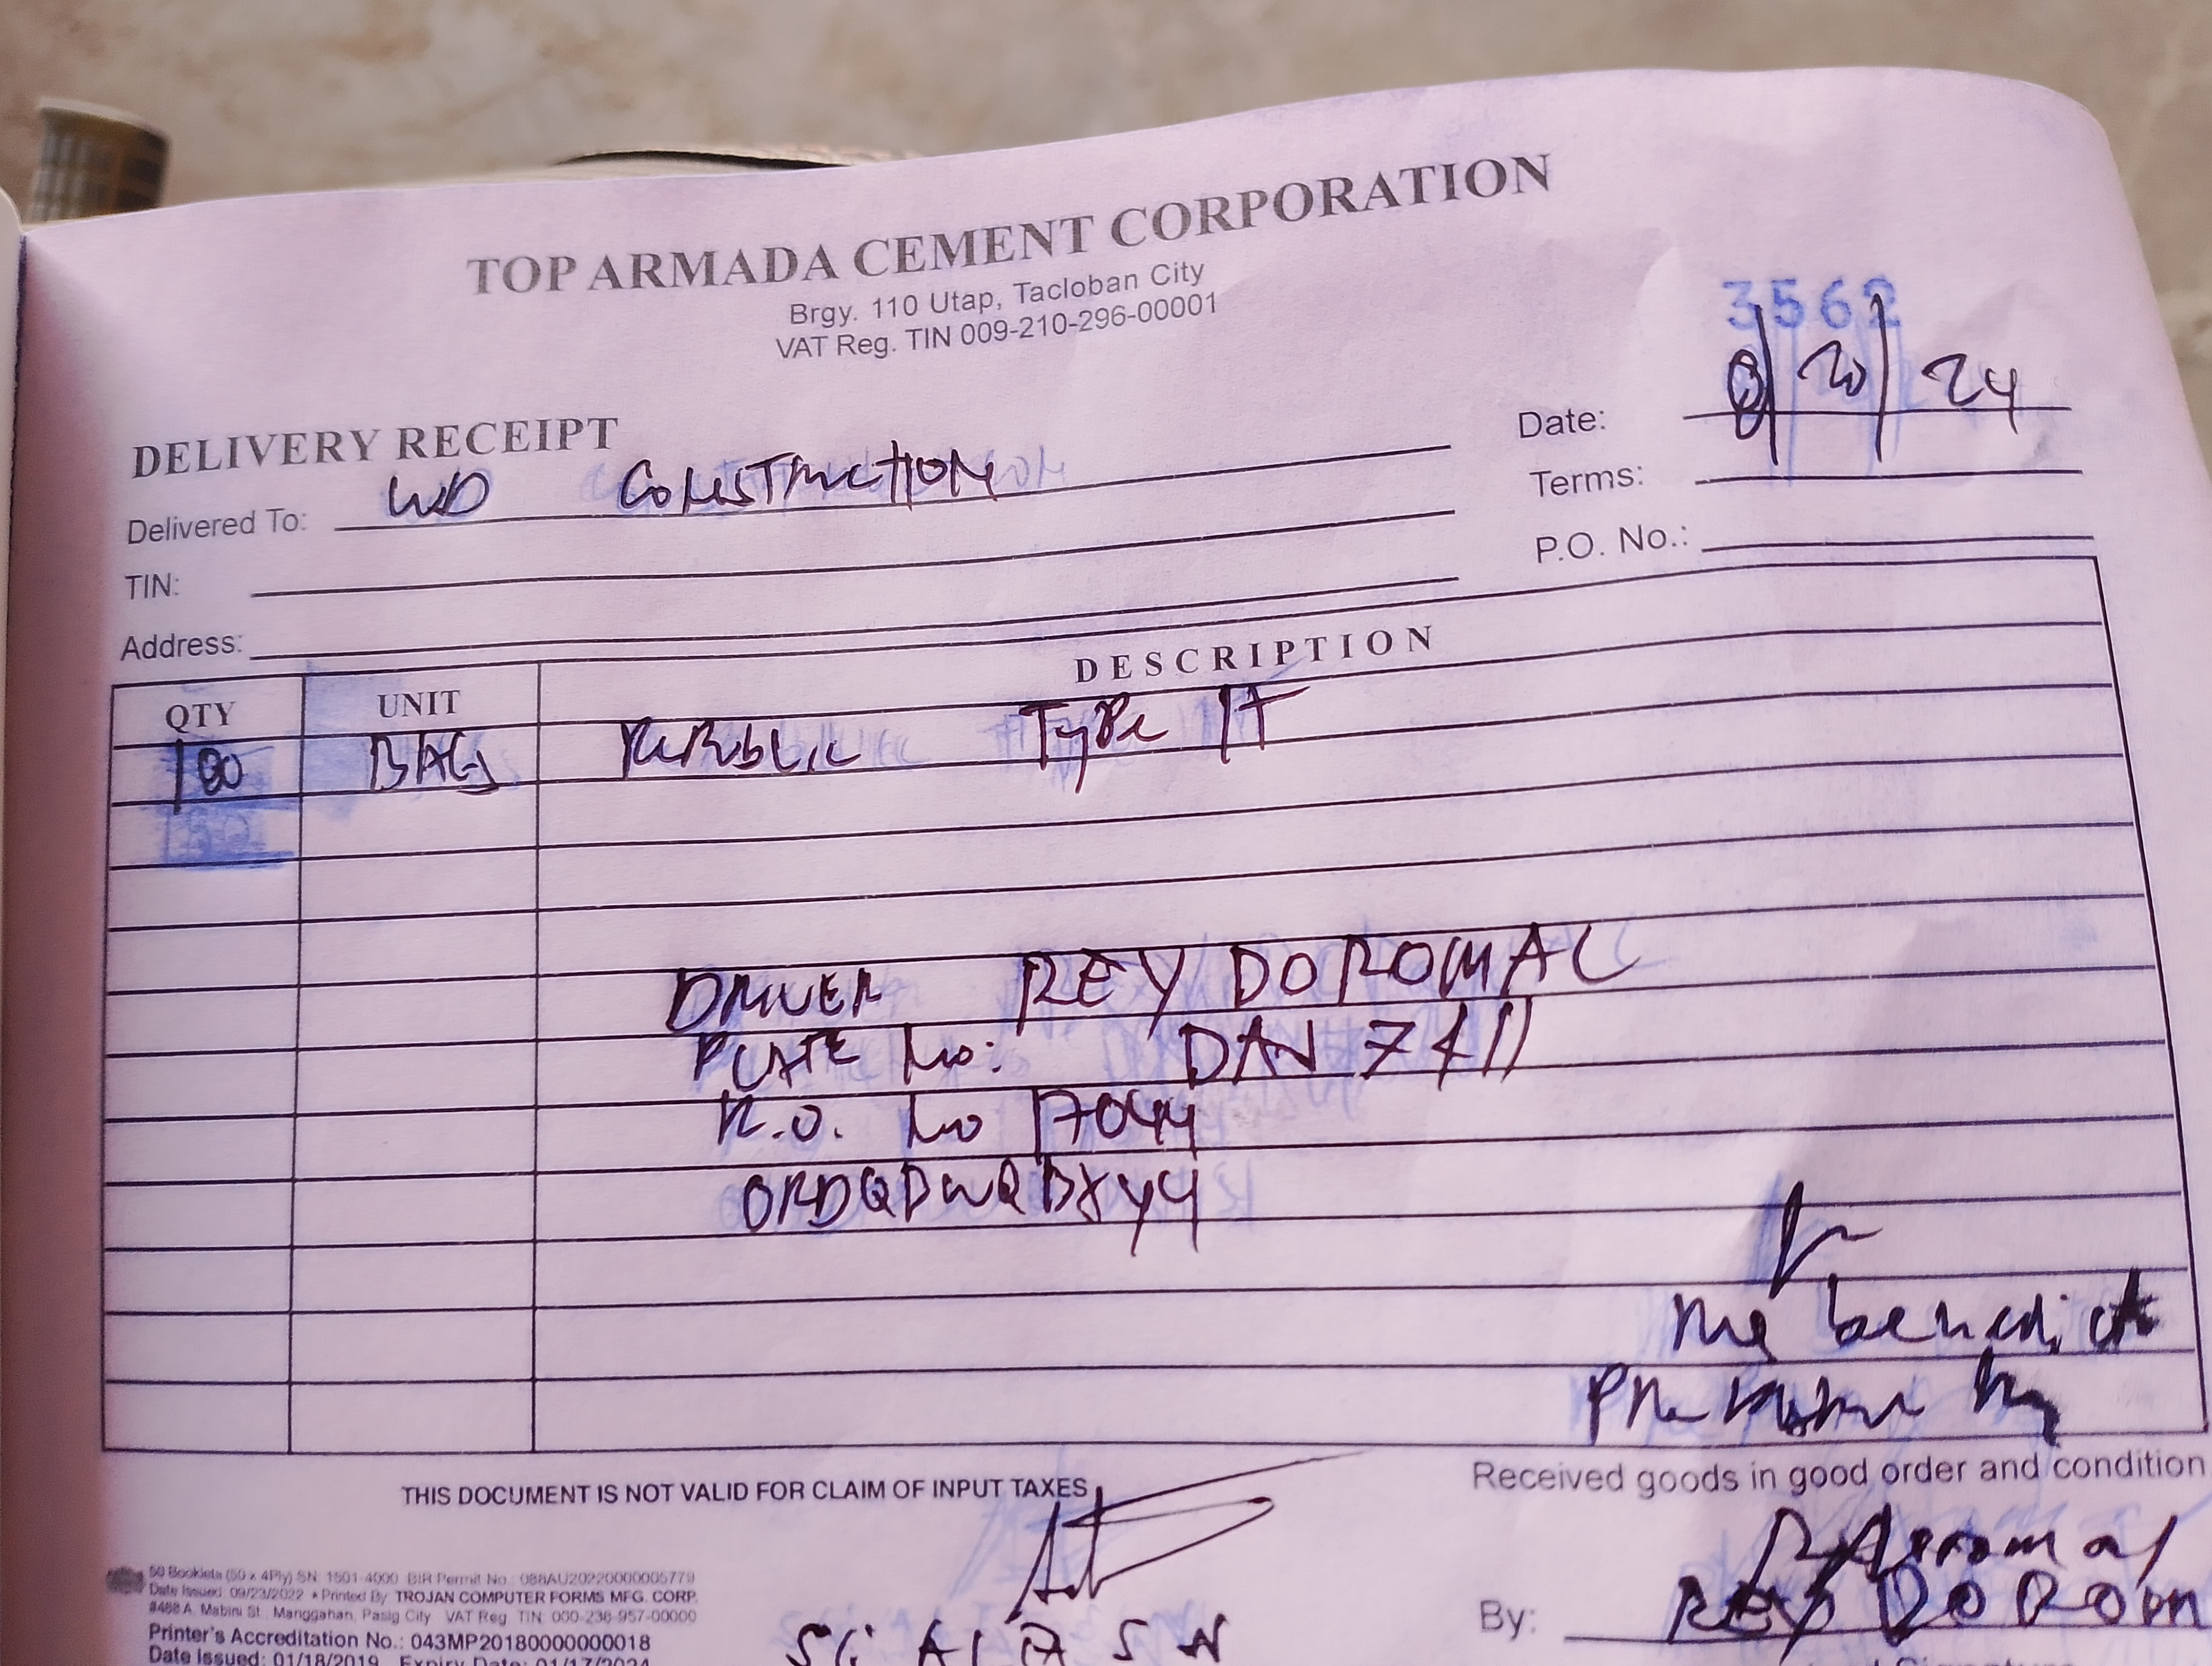 TOP ARMADA CEMENT CORPORATION
Brgy. 110 Utap, Tacloban City
VAT Reg. TIN 009-210-296-00001
3562
DELIVERY RECEIPT
Date: 8/20/24
Delivered To: WD CONSTRUCTION
Terms:
TIN:
P.O. No.:
Address:
QTY UNIT DESCRIPTION
100 BAGS REPUBLIC TYPE 1T
DRIVER REY DOROMAL
PLATE No: DAN 7411
R.O. No 17044
ORDQDWQBXY4
benedict
by
THIS DOCUMENT IS NOT VALID FOR CLAIM OF INPUT TAXES
Received goods in good order and condition
50 Booklets (50 x 4Ply) SN: 1501-4000 BIR Permit No.: 088AU20220000005779
Date Issued: 09/23/2022 * Printed By TROJAN COMPUTER FORMS MFG. CORP.
#488 A. Mabini St., Manggahan, Pasig City VAT Reg. TIN: 000-236-957-00000
Printer's Accreditation No.: 043MP20180000000018
Date Issued: 01/18/2019 Expiry Date: 01/17/2024
By: REY DOROM